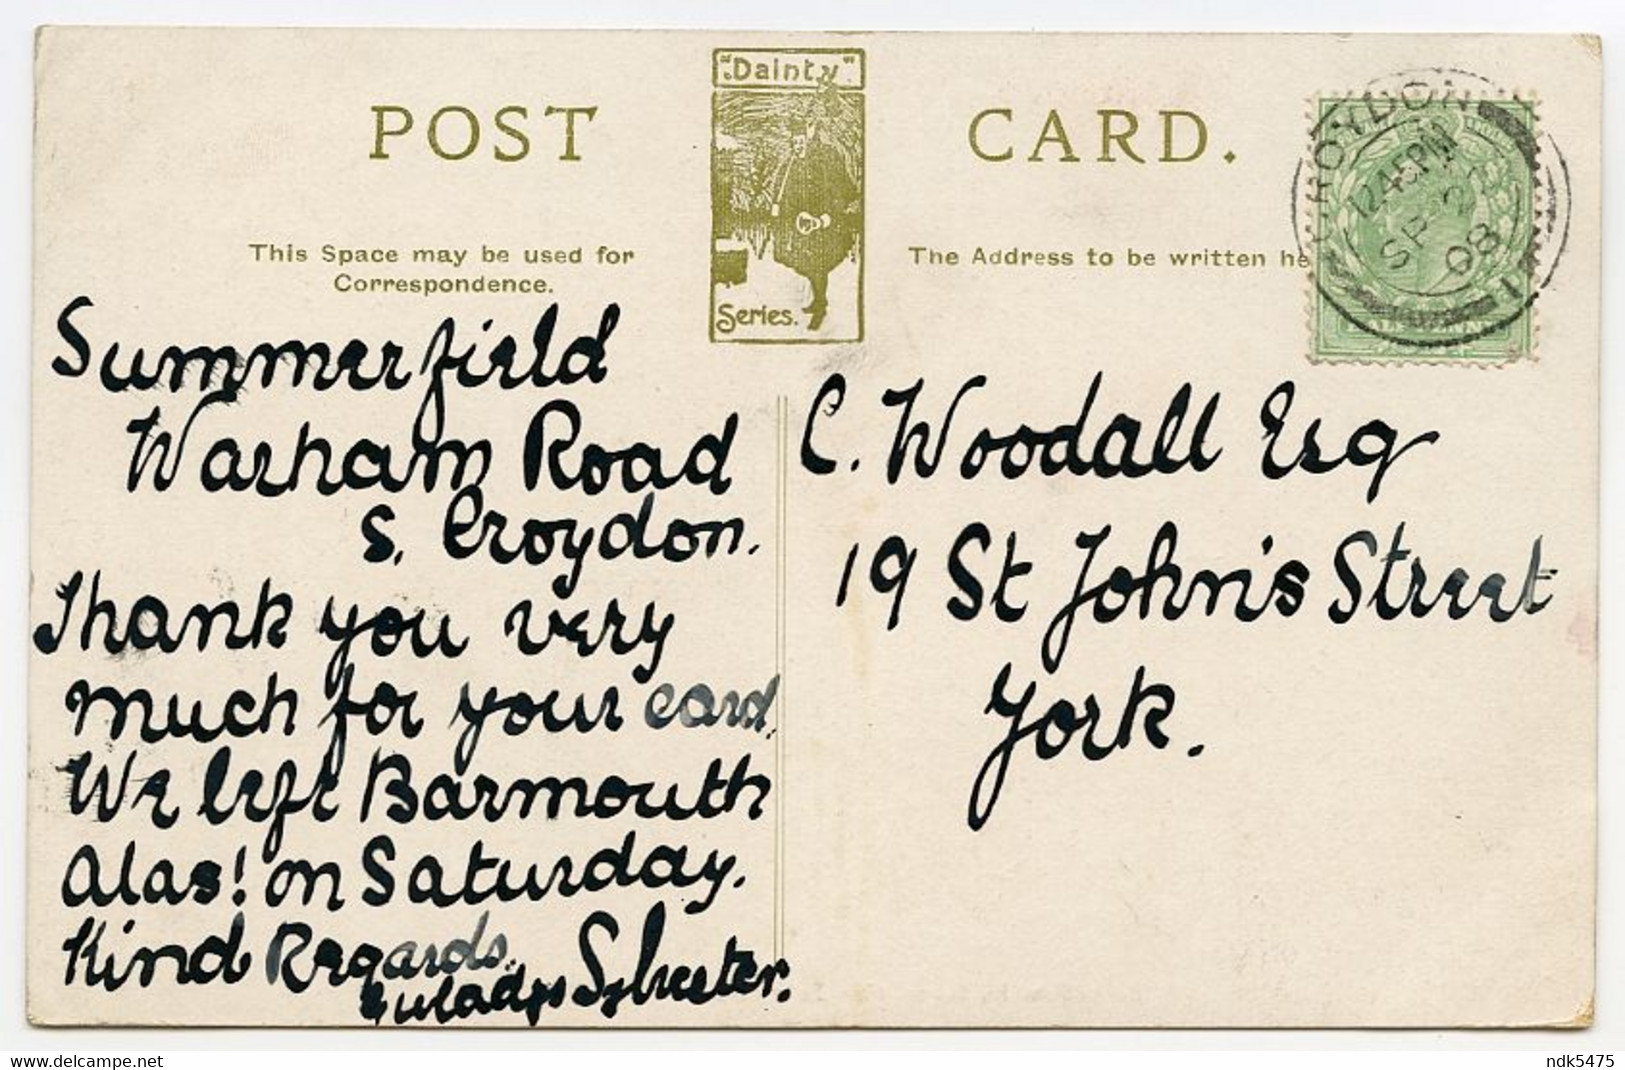 "Dainty"
POST CARD.
This Space may be used for
Correspondence.
The Address to be written he
Series.
CROYDON
12 45 PM
SP 22
08
1
Summerfield
Warham Road
S. Croydon.
Thank you very
much for your card.
We left Barmouth
Alas! on Saturday.
Kind Regards.
Gwladys Sylvester.
C. Woodall Esq
19 St John's Street
York.
Delcampe.net
ndk5475